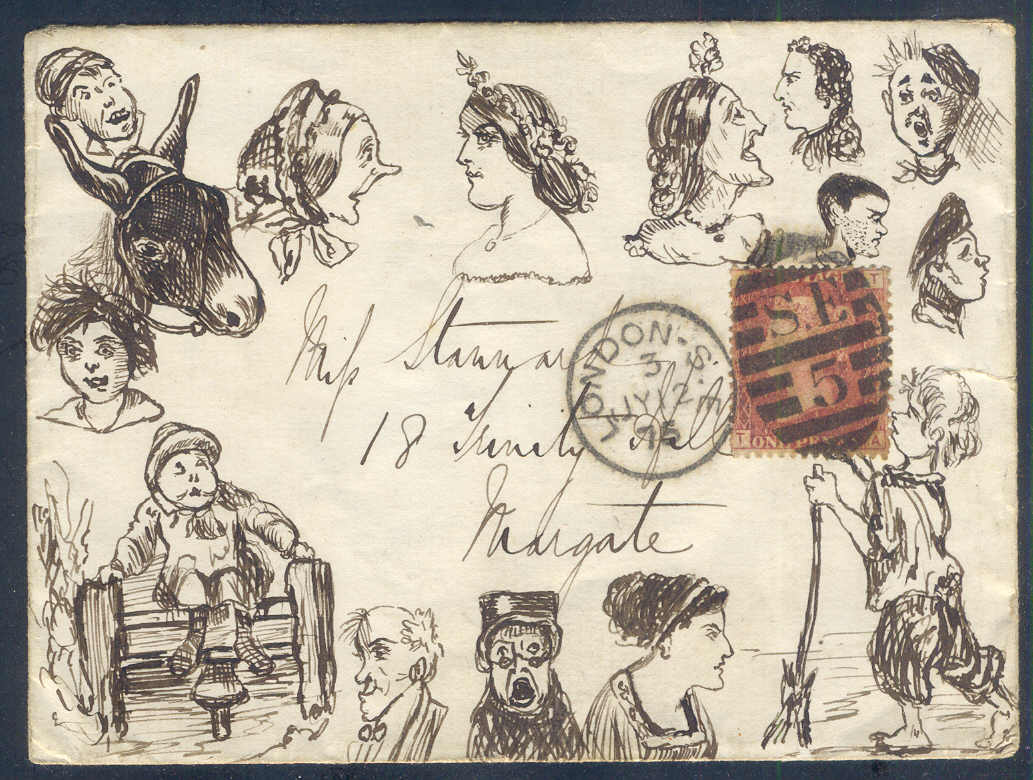 Miss Stannard
18 Trinity Hill
Margate
LONDON-S.E
3
JY 12
S.E.
5
T
ONE PENNY
T A